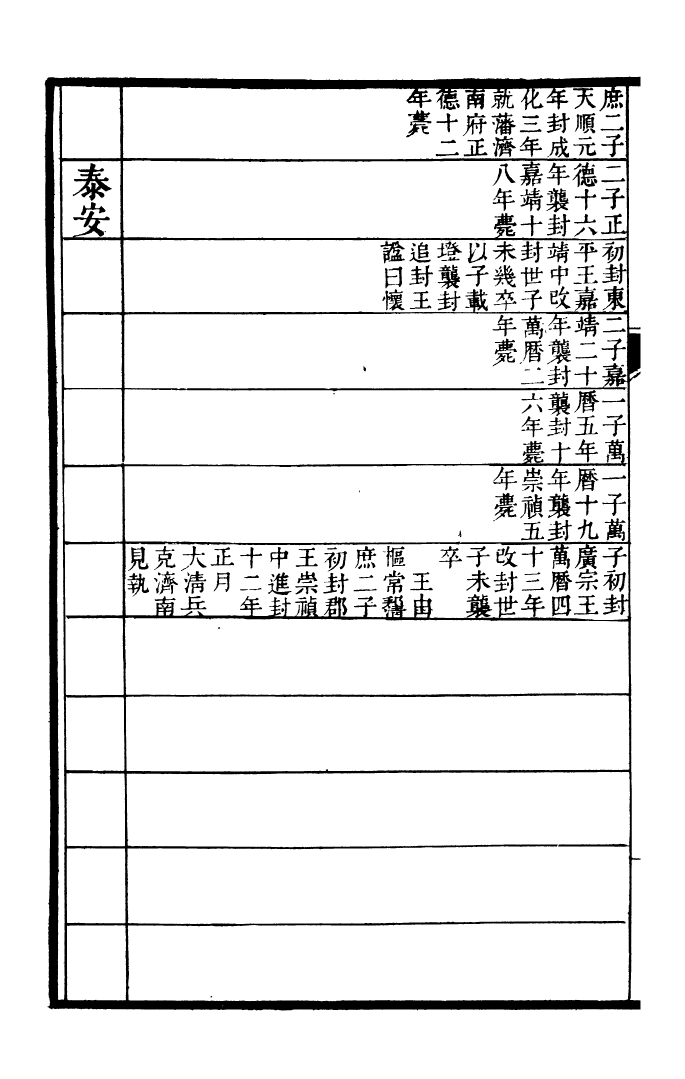 庶二子
天順元
年封成
化三年
就藩濟
南府正
德十二
年薨
二子正
德十六
年襲封
嘉靖十
八年薨
泰安
初封東
平王嘉
靖中改
封世子
未幾卒
以子載
墱襲封
追封王
諡曰懷
二子嘉
靖二十
年襲封
萬曆二
年薨
一子萬
曆五年
襲封十
六年薨
一子萬
曆十九
年襲封
崇禎五
年薨
子初封
廣宗王
萬曆四
十三年
改封世
子未襲
卒
王由
樞常
庶二子
初封郡
王崇禎
中進封
十二年
正月
大清兵
克濟南
見執